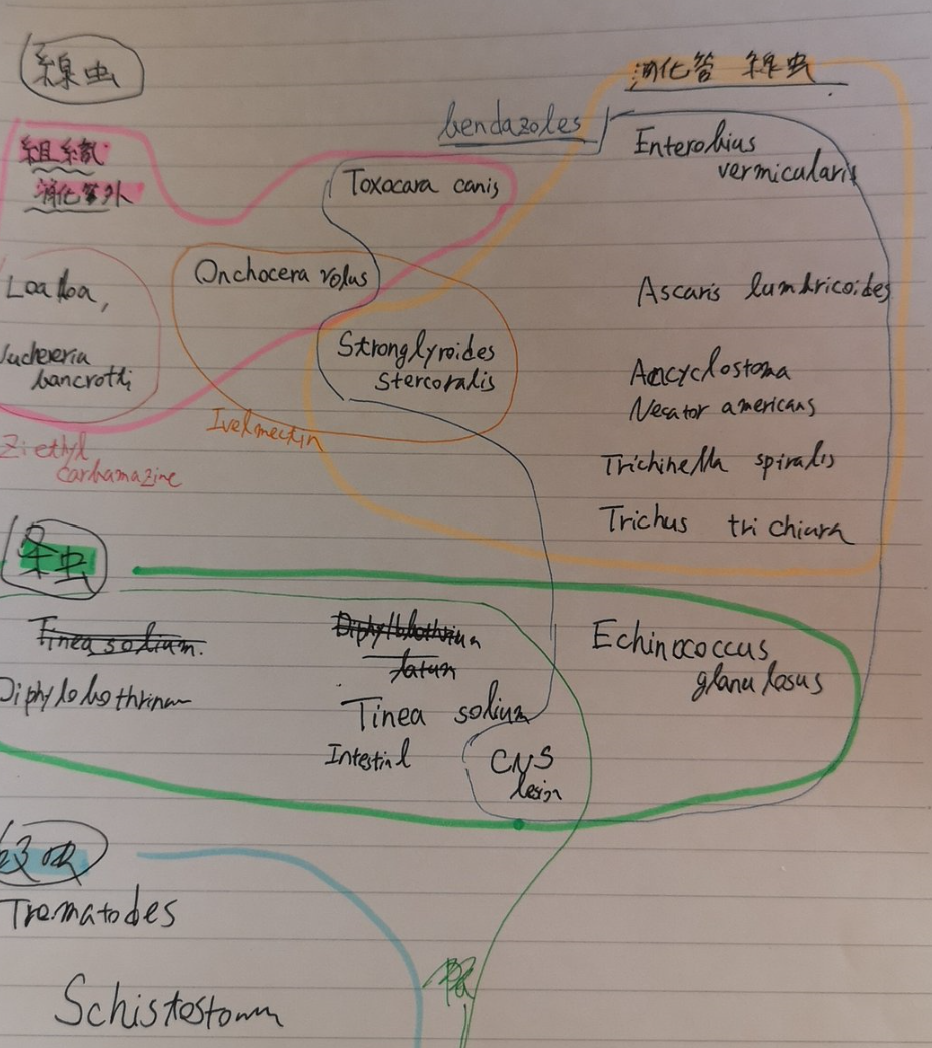 線虫
消化管 線虫
bendazoles
組織
消化管外
Toxocara canis
Enterobius
vermicularis
Onchocera volus
Loa loa,
Ascaris lumbricoides
Stronglyroides
stercoralis
bancrotti
Ancyclostoma
Necator americans
Ivelmectin
Ziethyl
carbamazine
Trichinella spiralis
Trichus trichiura
条虫
Tinea solium.
Diphyllobothrium
latum
Echinococcus
glanulosus
Diphylobothrium
Tinea solium
Intestinl
CNS
lesion
Trematodes
Schistostoma